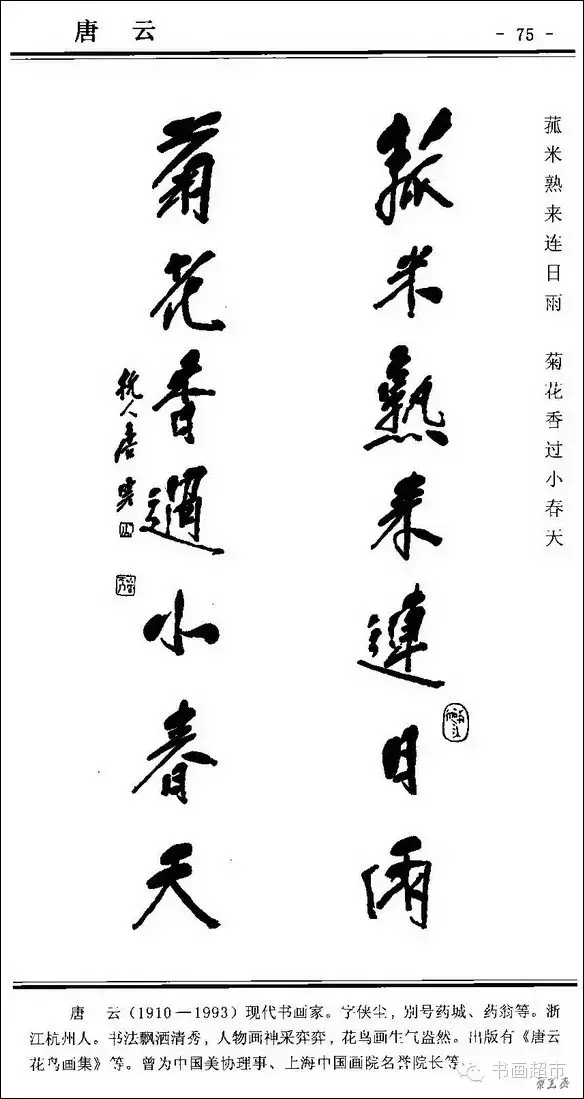 唐云
- 75 -
菰米熟来连日雨 菊花香过小春天
菰米熟来連日雨
菊花香過小春天
杭人唐云
唐 云(1910—1993)现代书画家。字侠尘,别号药城、药翁等。浙
江杭州人。书法飘洒清秀,人物画神采奕奕,花鸟画生气盎然。出版有《唐云
花鸟画集》等。曾为中国美协理事、上海中国画院名誉院长等。
书画超市